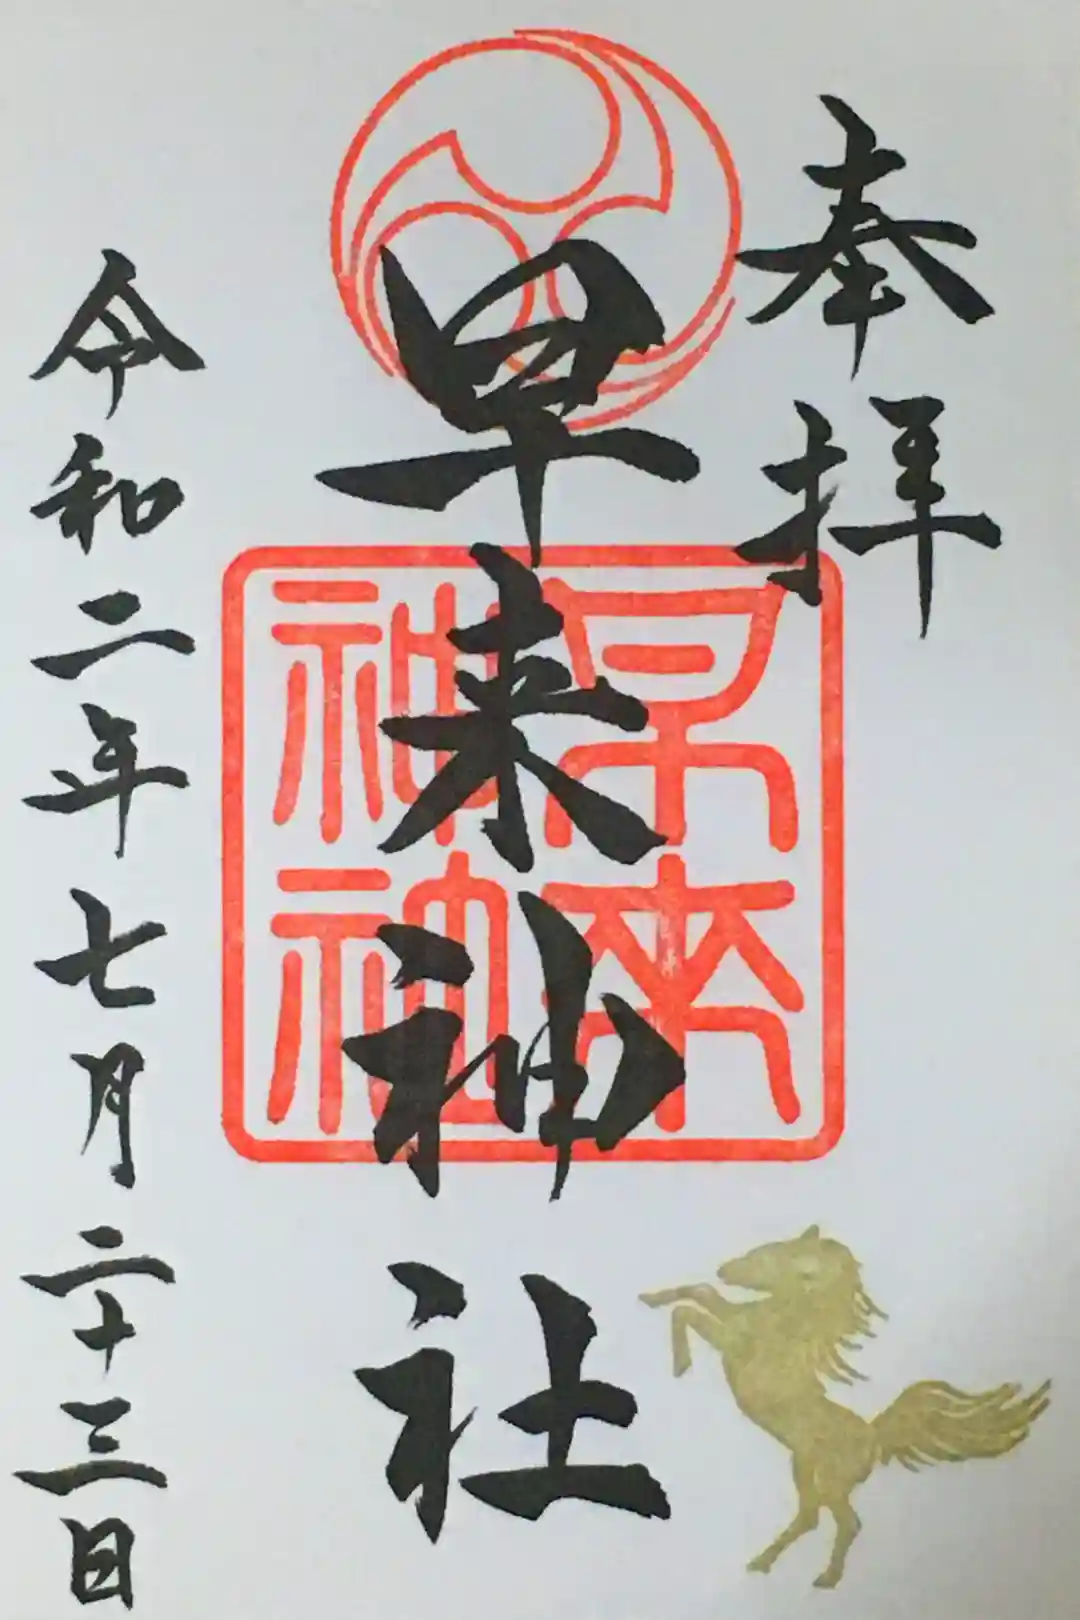 奉拝
早来神社
早来
神社
令和二年七月二十三日